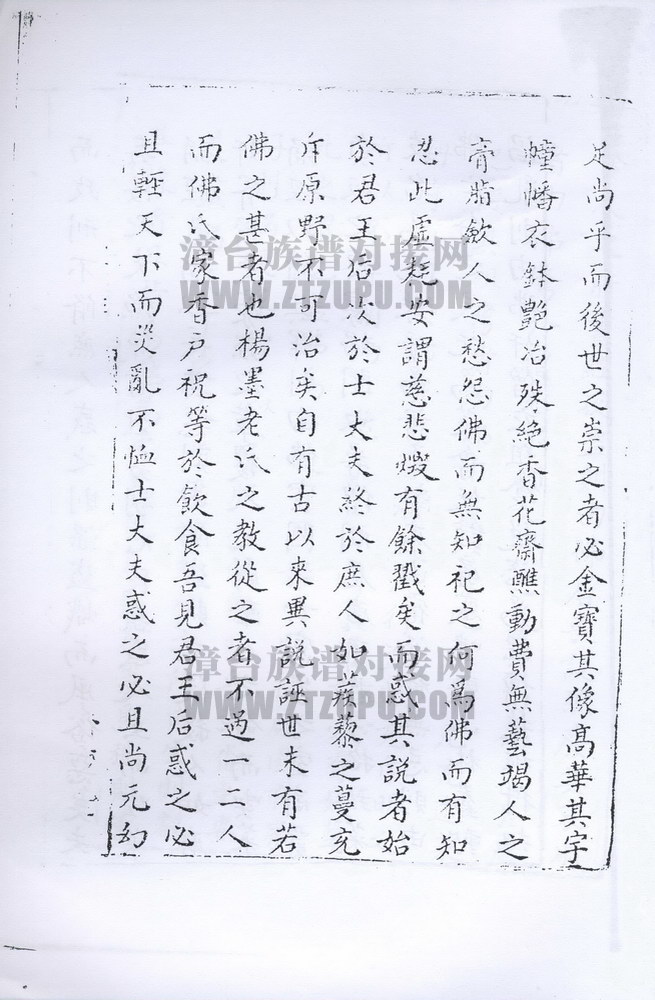 足尚乎而後世之崇之者必金寶其像高華其宇
幢幡衣鉢艷冶殊絕香花齋醮動費無藝竭人之
膏脂斂人之愁怨佛而無知祀之何爲佛而有知
忍此虛耗安謂慈悲燬有餘戮矣而惑其說者始
於君王后次於士大夫終於庶人如蒺藜之蔓充
斥原野不可治矣自有古以來異説誣世未有若
佛之甚者也楊墨老氏之教從之者不過一二人
而佛氏家香戶祝等於飲食吾見君王后惑之必
且輕天下而災亂不恤士大夫惑之必且尚元幻
漳台族谱对接网
WWW.ZTZUPU.COM
漳台族谱对接网
WWW.ZTZUPU.COM